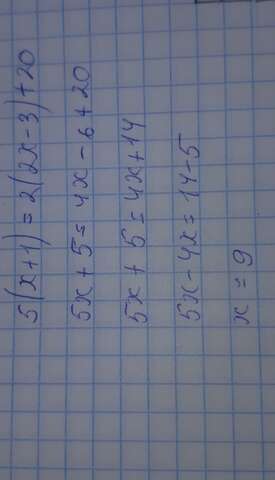 5(x+1)=2(2x-3)+20
5x+5=4x-6+20
5x+5=4x+14
5x-4x=14-5
x=9